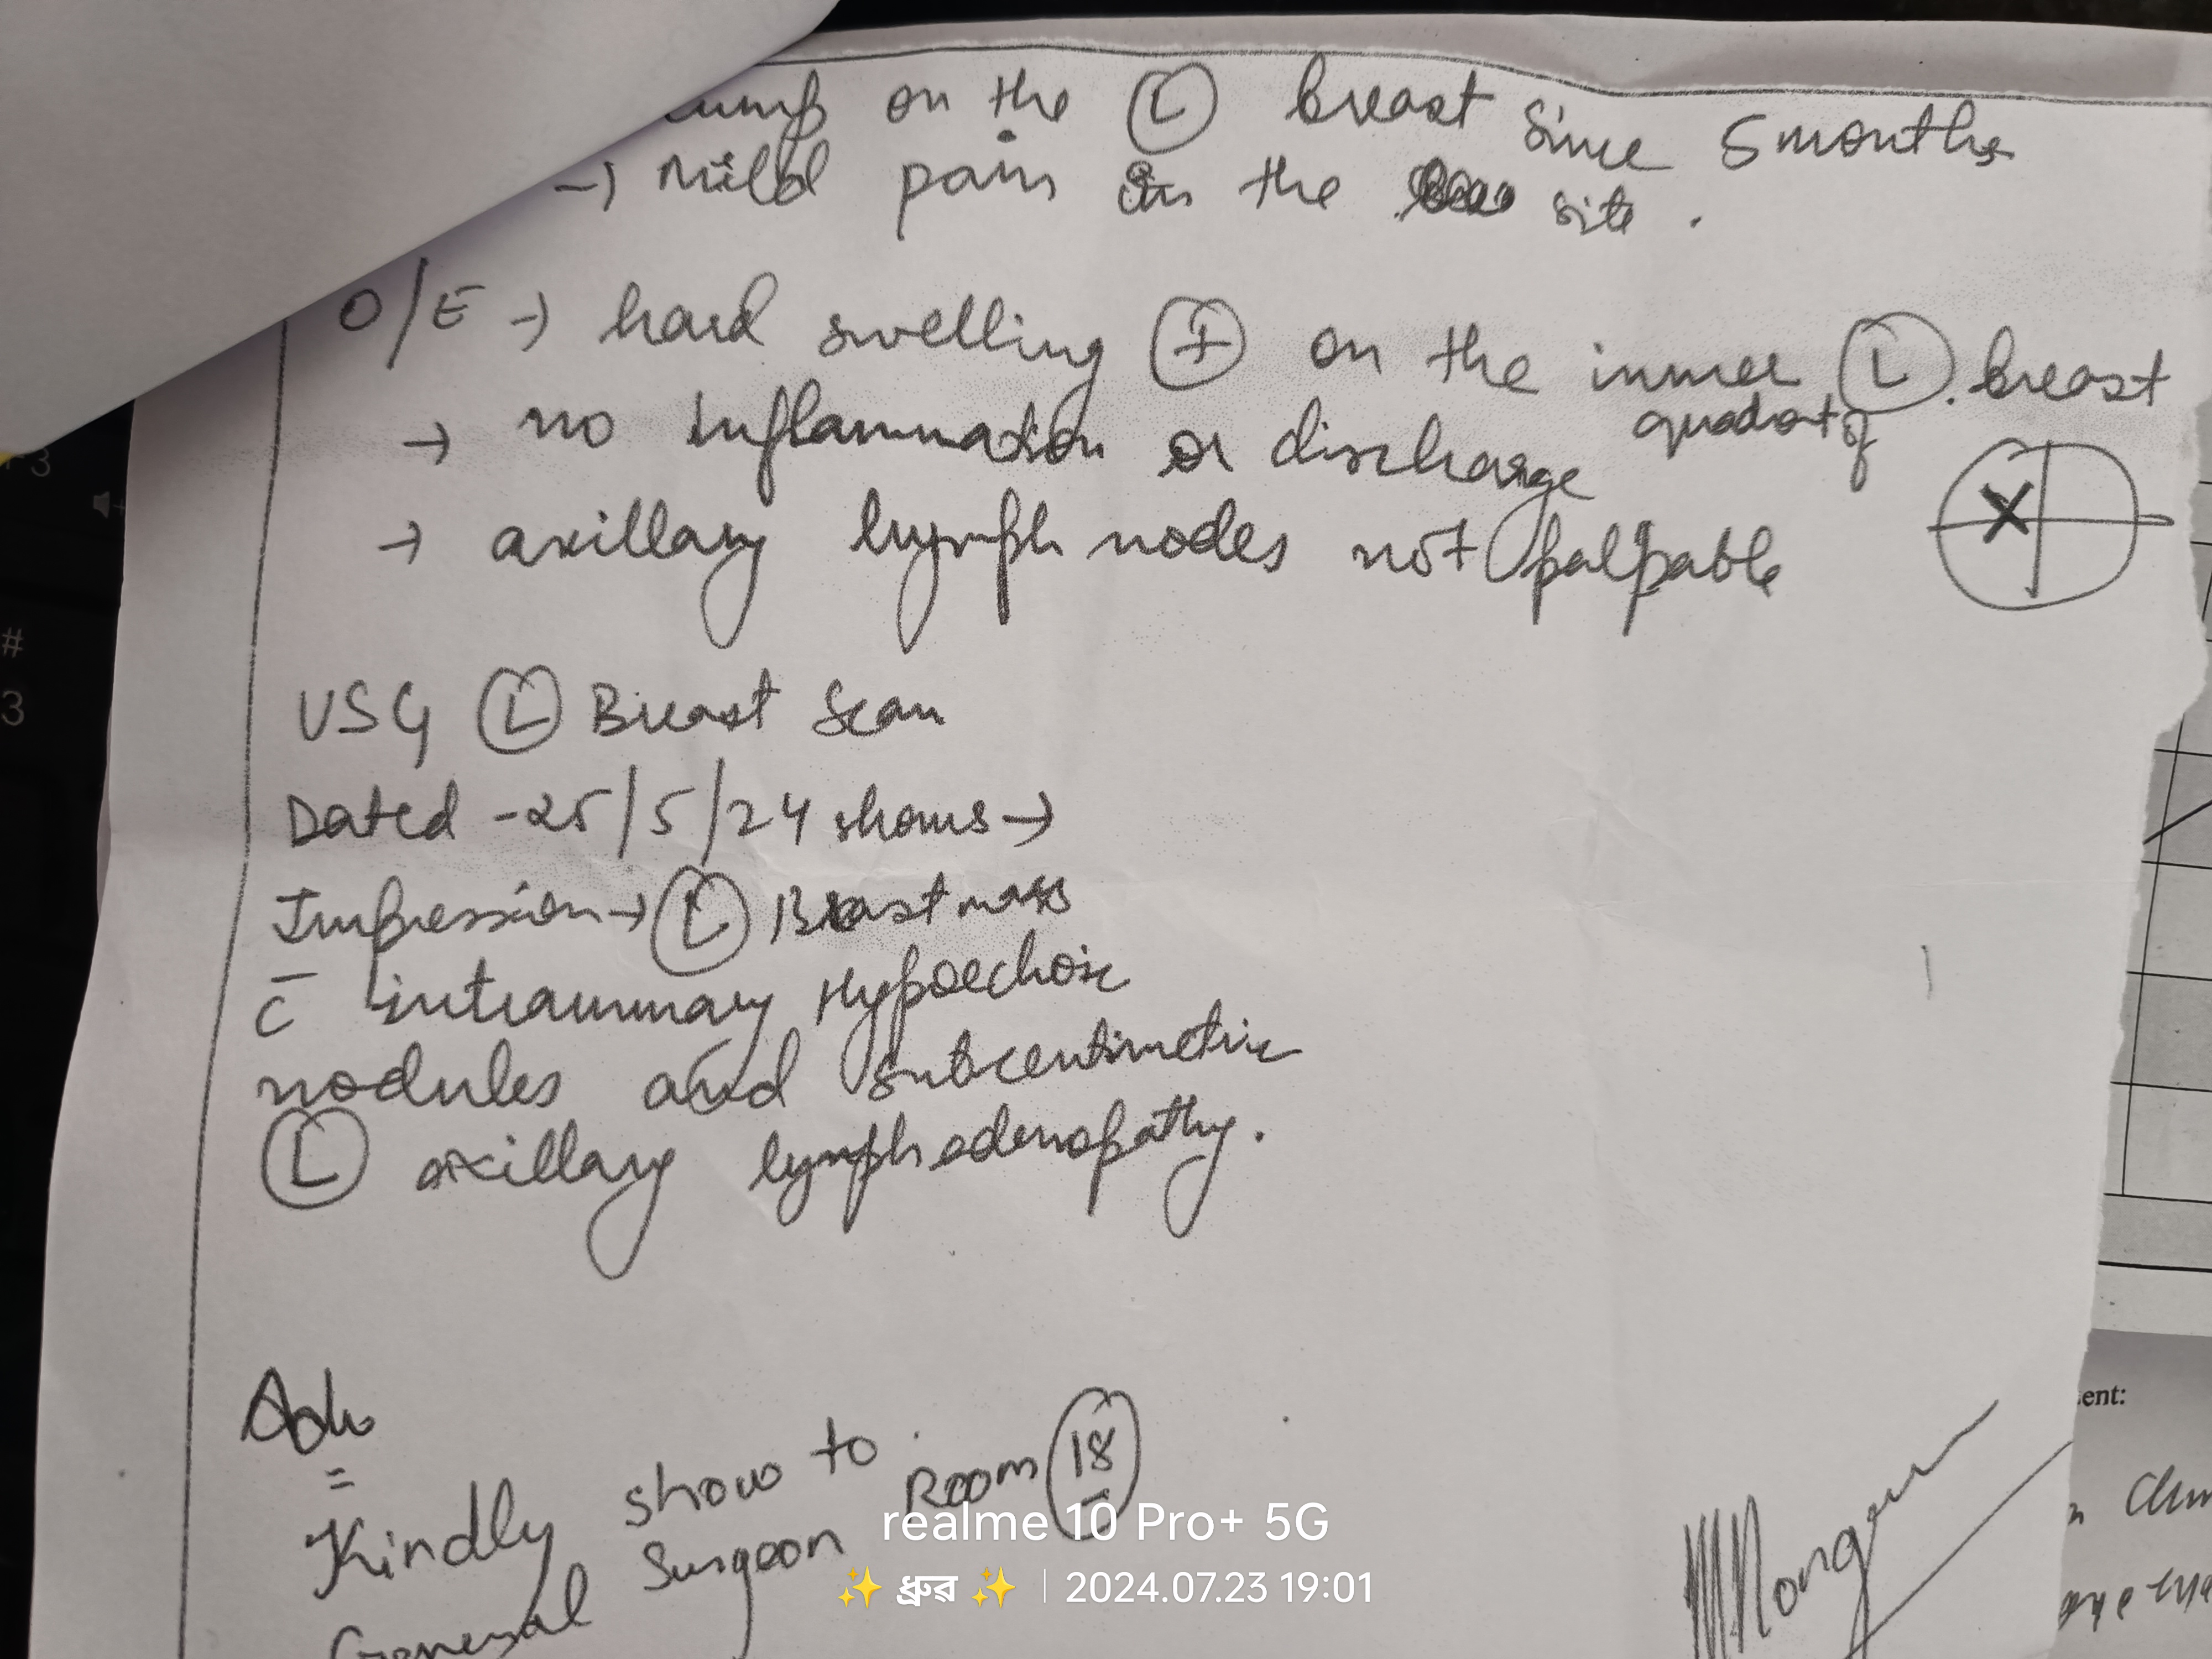 Lump on the (L) breast since 5 months
→ Mild pain in the site.
O/E → hard swelling (+) on the inner quadrant of (L). breast
→ no inflammation or discharge
→ axillary lymph nodes not palpable
X
USG (L) Breast Scan
Dated - 25/5/24 shows →
Impression → (L) Breast mass
c̄ intrammary Hypoechoic
nodules and subcentimetric
(L) axillary lymphadenopathy.
Adv
=
Kindly show to Room (18)
General Surgeon
ent:
realme 10 Pro+ 5G
✨ ধ্ৰুৱ ✨ | 2024.07.23 19:01
#
3